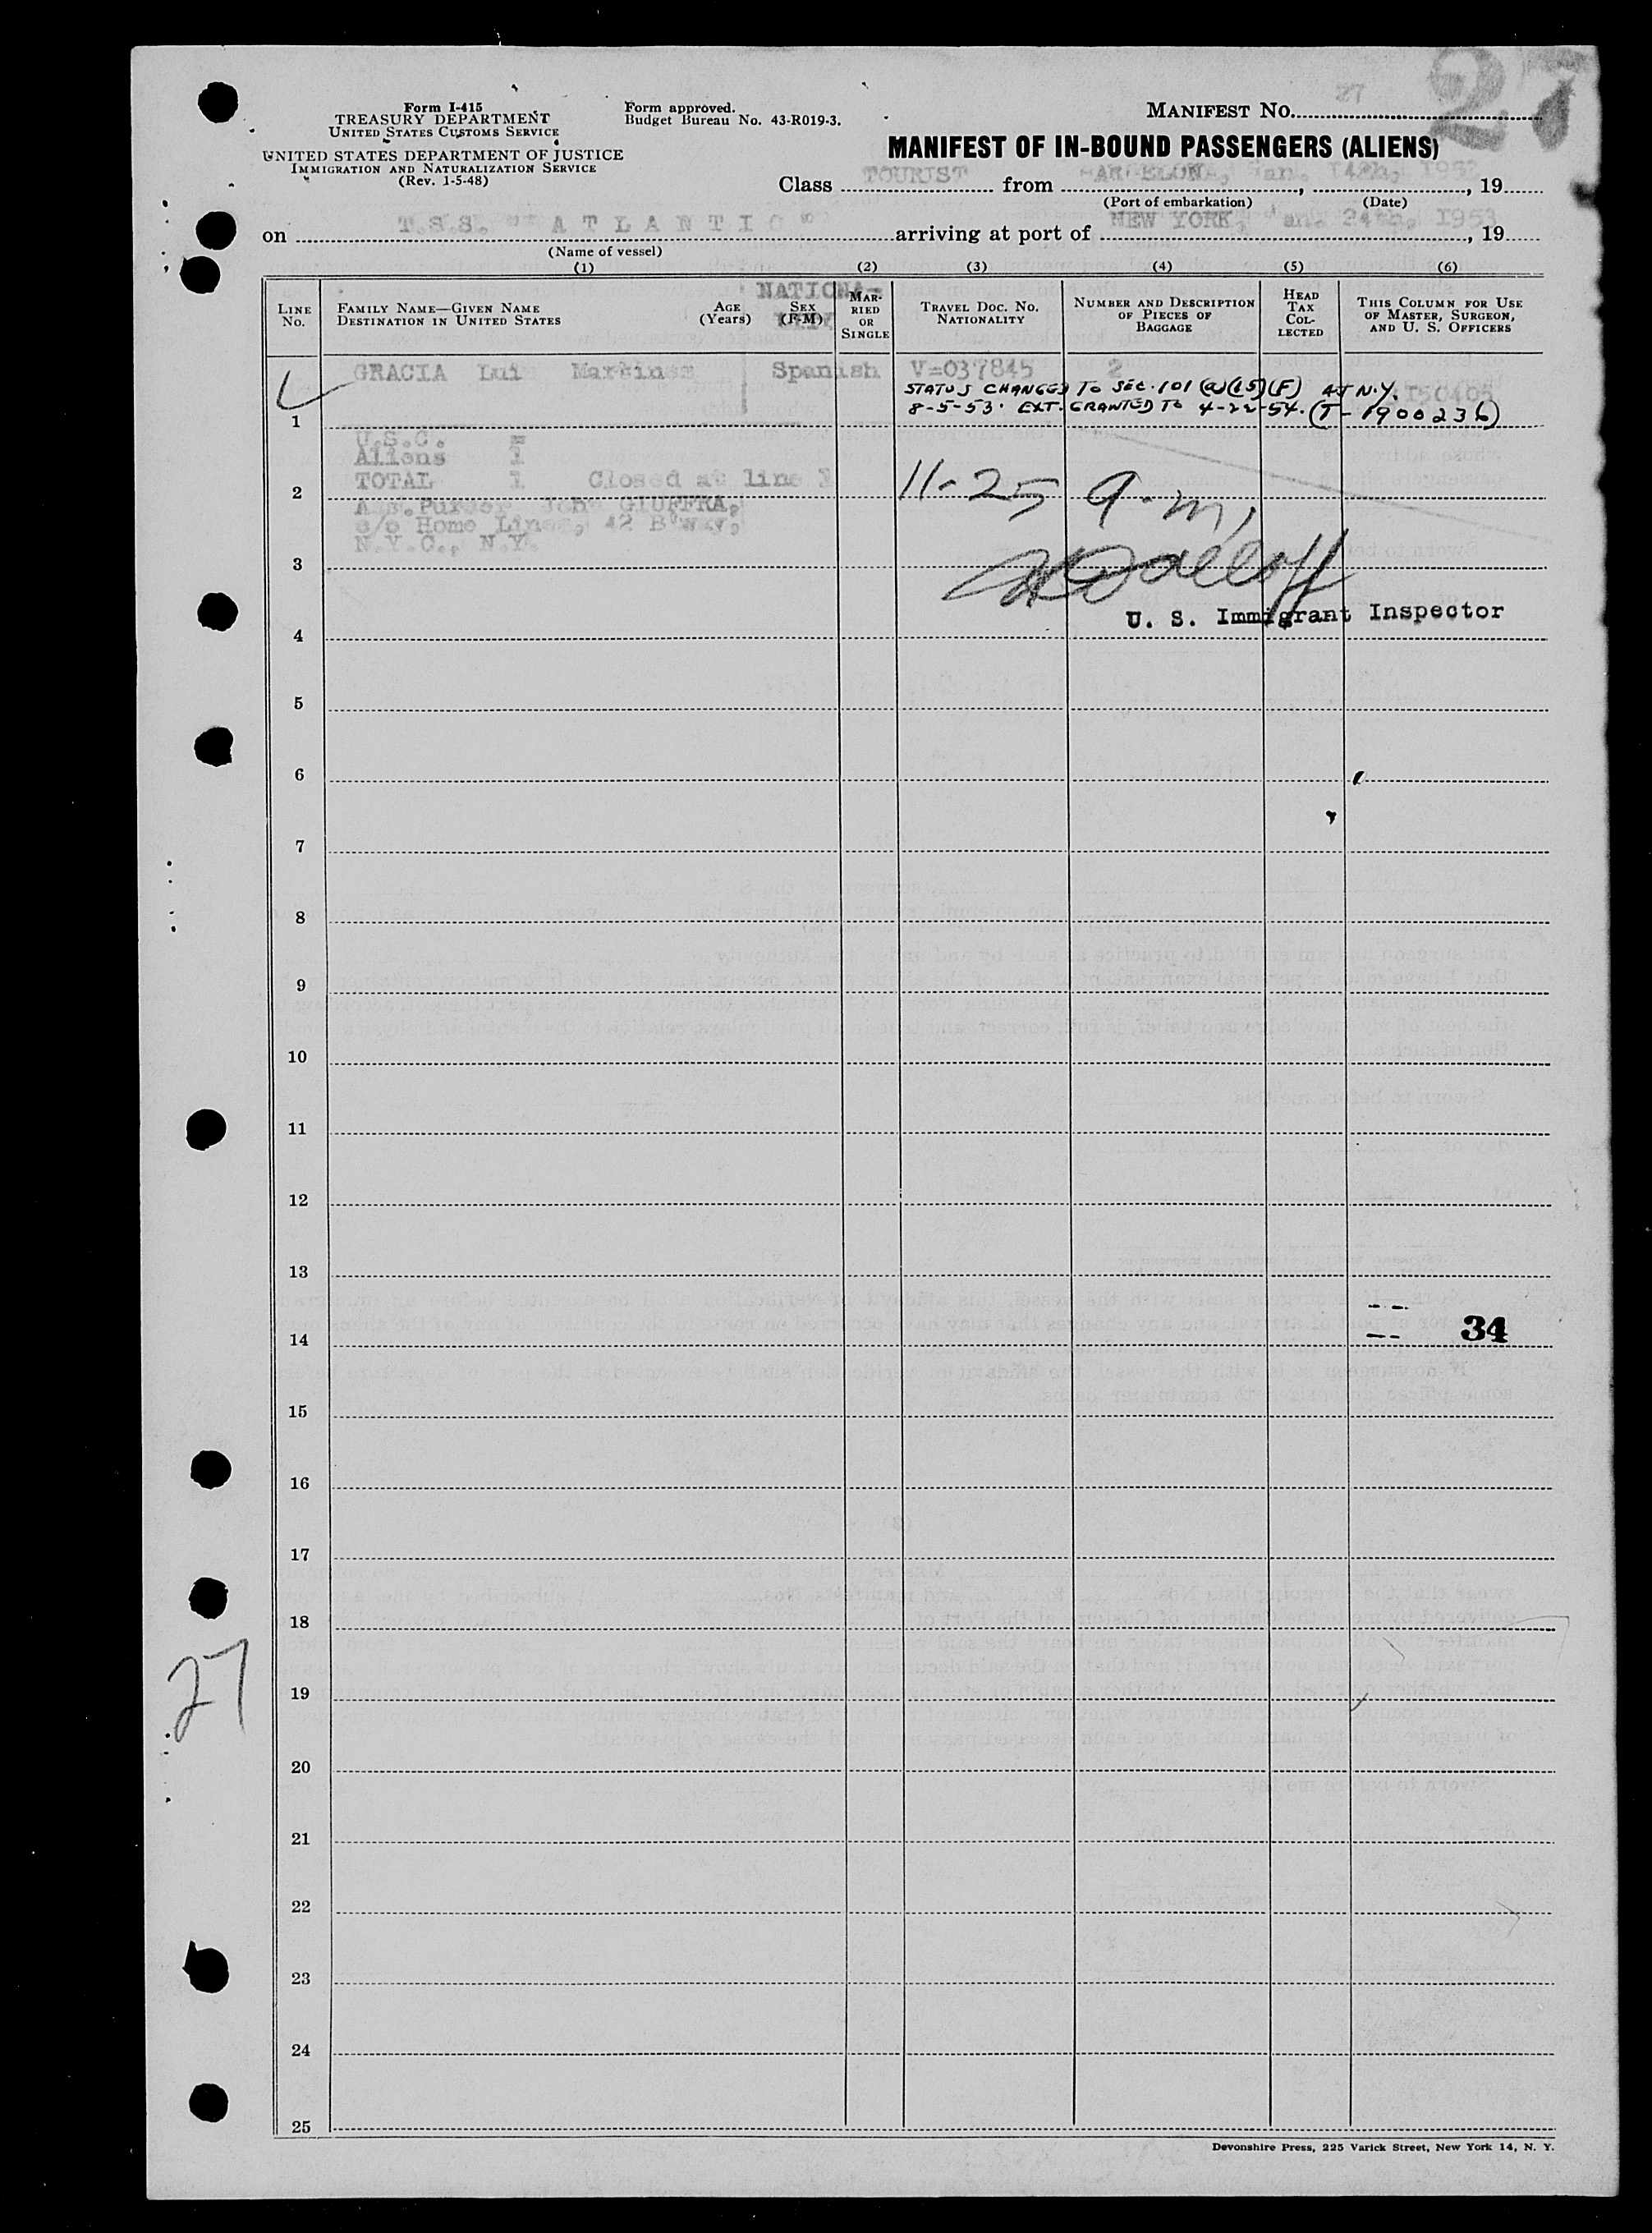 27
Form I-415
TREASURY DEPARTMENT
UNITED STATES CUSTOMS SERVICE
UNITED STATES DEPARTMENT OF JUSTICE
IMMIGRATION AND NATURALIZATION SERVICE
(Rev. 1-5-48)
Form approved.
Budget Bureau No. 43-R019-3.
MANIFEST No. 27
MANIFEST OF IN-BOUND PASSENGERS (ALIENS)
Class TOURIST from , , 19
(Port of embarkation) (Date)
on T.S.S. " A T L A N T I C " arriving at port of NEW YORK, an. 24th, 1953, 19
(Name of vessel)
(1) (2) (3) (4) (5) (6)
LINE No.
FAMILY NAME—GIVEN NAME
DESTINATION IN UNITED STATES
AGE (Years)
SEX (F-M)
NATIONA-
MARRIED OR SINGLE
TRAVEL DOC. NO.
NATIONALITY
NUMBER AND DESCRIPTION OF PIECES OF BAGGAGE
HEAD TAX COLLECTED
THIS COLUMN FOR USE OF MASTER, SURGEON, AND U. S. OFFICERS
GRACIA Lui Spanish V=037845 2
STATUS CHANGED TO SEC. 101 (a)(15)(F) AT N.Y.
I50405
8-5-53. EXT. GRANTED TO 4-22-54. (T-1900236)
1
U.S.C. =
Aliens I
TOTAL I Closed at line
2
11-25 a.m.
Ass.Purser John GIUFFRA,
c/o Home Lines, 42 B'way,
N.Y.C., N.Y.
3
U. S. Immigrant Inspector
4
5
6
7
8
9
10
11
12
13
14
34
15
16
17
18
27
19
20
21
22
23
24
25
Devonshire Press, 225 Varick Street, New York 14, N. Y.